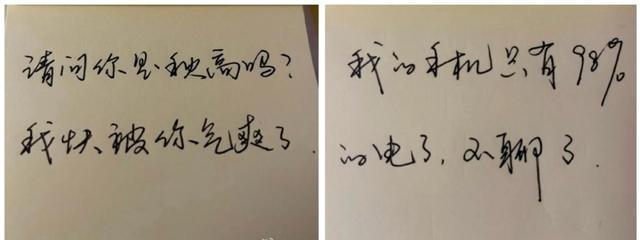 请问你是秋高吗?
我快被你气爽了.
我的手机只有98%
的电了,不聊了.